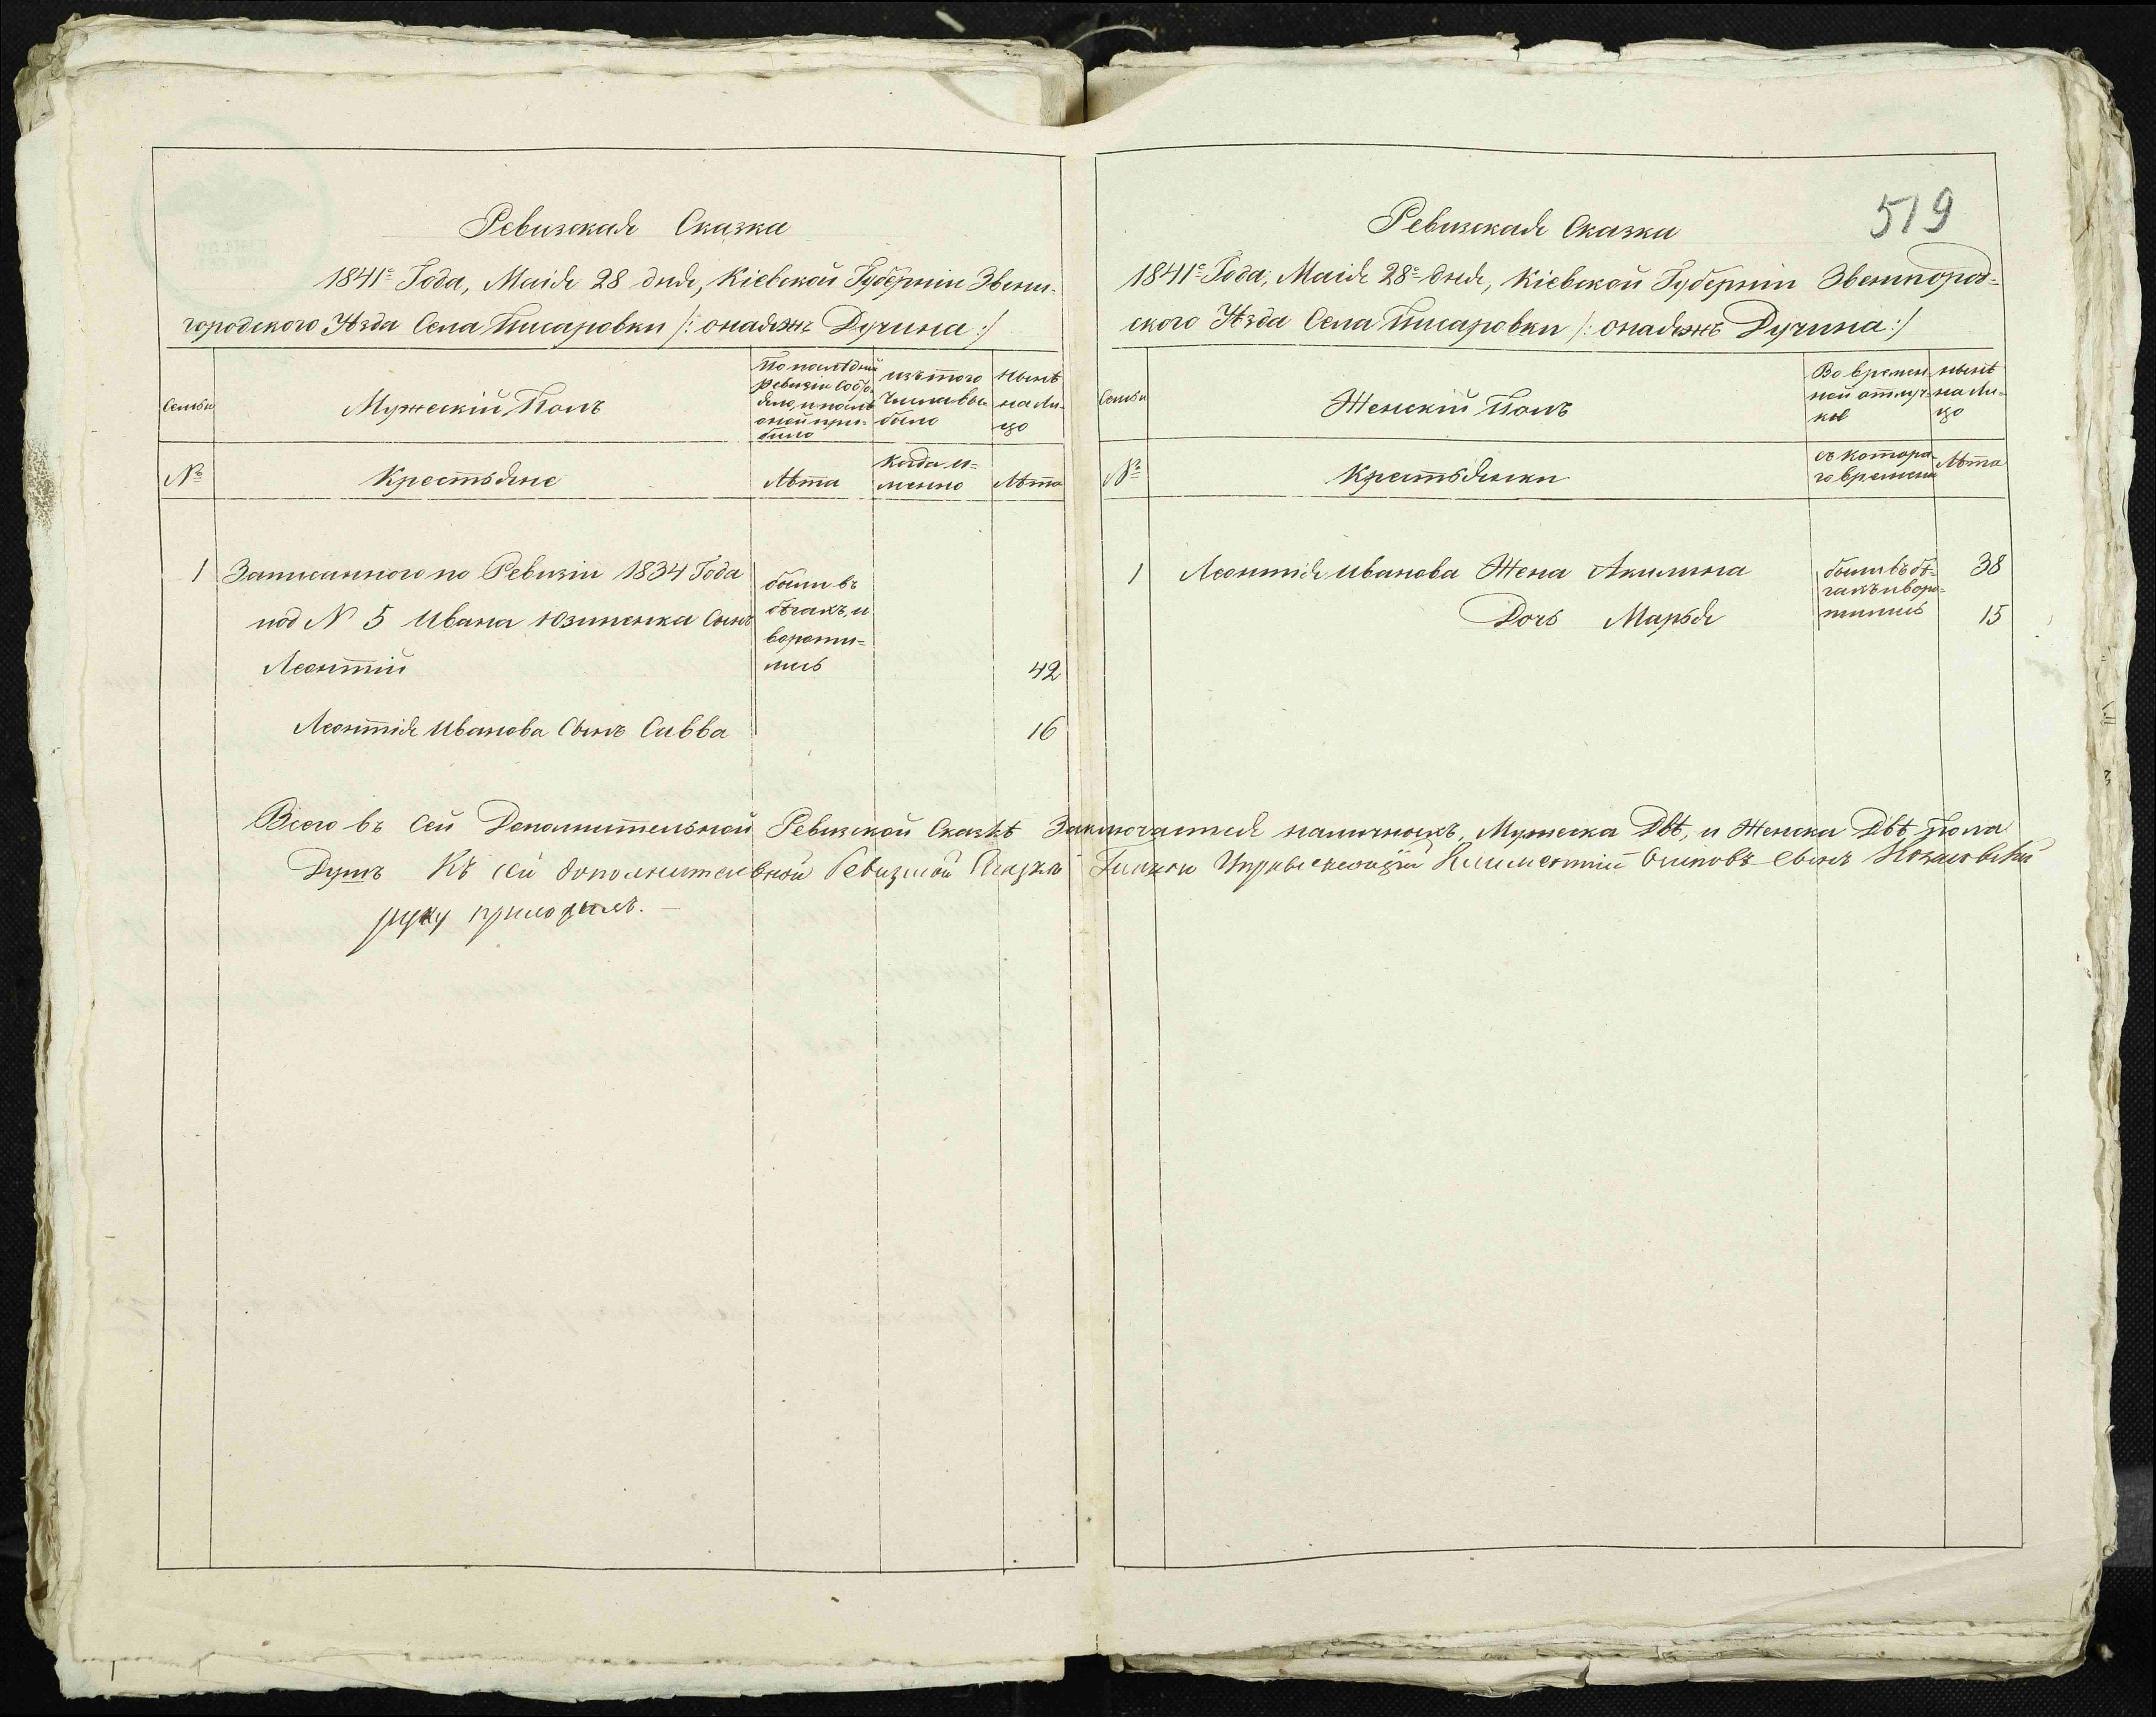 Ревизская Сказка
1841го Года, Маія 28 дня, Кіевской Губерніи Звени-
городского Уѣзда Села Писаровки /: она же Дучина :/
Семьи
Мужескій Полъ
По последней
ревизіи состо-
яло, и послѣ
оной при-
было
изъ того
числа вы-
было
нынѣ
на ли-
цо
№
Крестьяне
Лѣта
когда и-
менно
Лѣта
1 Записанного по Ревизіи 1834 Года
под N 5 Ивана Юзиненка Сынъ
Леонтій 42
были въ
бѣгахъ, и
вороти-
лись
Леонтія Иванова Сынъ Савва 16
519
Ревизская Сказка
1841го Года, Маія 28го дня, Кіевской Губерніи Звенигород-
ского Уѣзда Села Писаровки /: она же Дучина :/
Семьи
Женскій Полъ
Во времен-
ной отлуч-
кѣ
нынѣ
на ли-
цо
№
Крестьянки
съ котора-
го времени
Лѣта
1 Леонтія Иванова Жена Акилина 38
Дочь Марья 15
были въ бѣ-
гахъ и воро-
тились
Всего въ сей Дополнительной Ревизской Сказкѣ Заключается наличныхъ, Мужеска Двѣ, и Женска Двѣ пола
Душъ Къ сей дополнительной Ревизкой Сказкѣ Управляющій Климентий Осиповъ сынъ Козловскій
руку приложилъ.